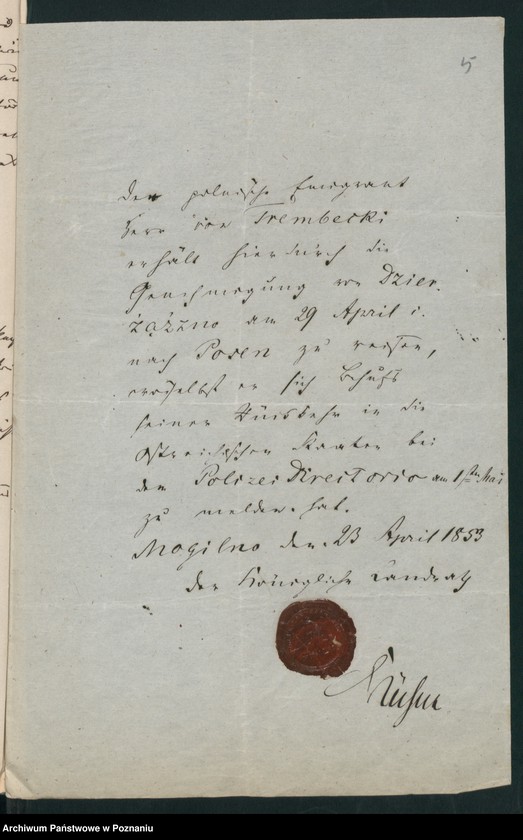 5
der polnische Emigrant
Herr von Trembecki
erhält hierdurch die
Genehmigung von Dzier-
żążno am 29 April c.
nach Posen zu reisen,
woselbst er sich Behufs
seiner Rückkehr in die
östreichschen Staaten bei
dem Polizei Directorio am 1sten Mai
zu melden hat.
Mogilno den 23 April 1853
der Königliche Landrath
Archiwum Państwowe w Poznaniu